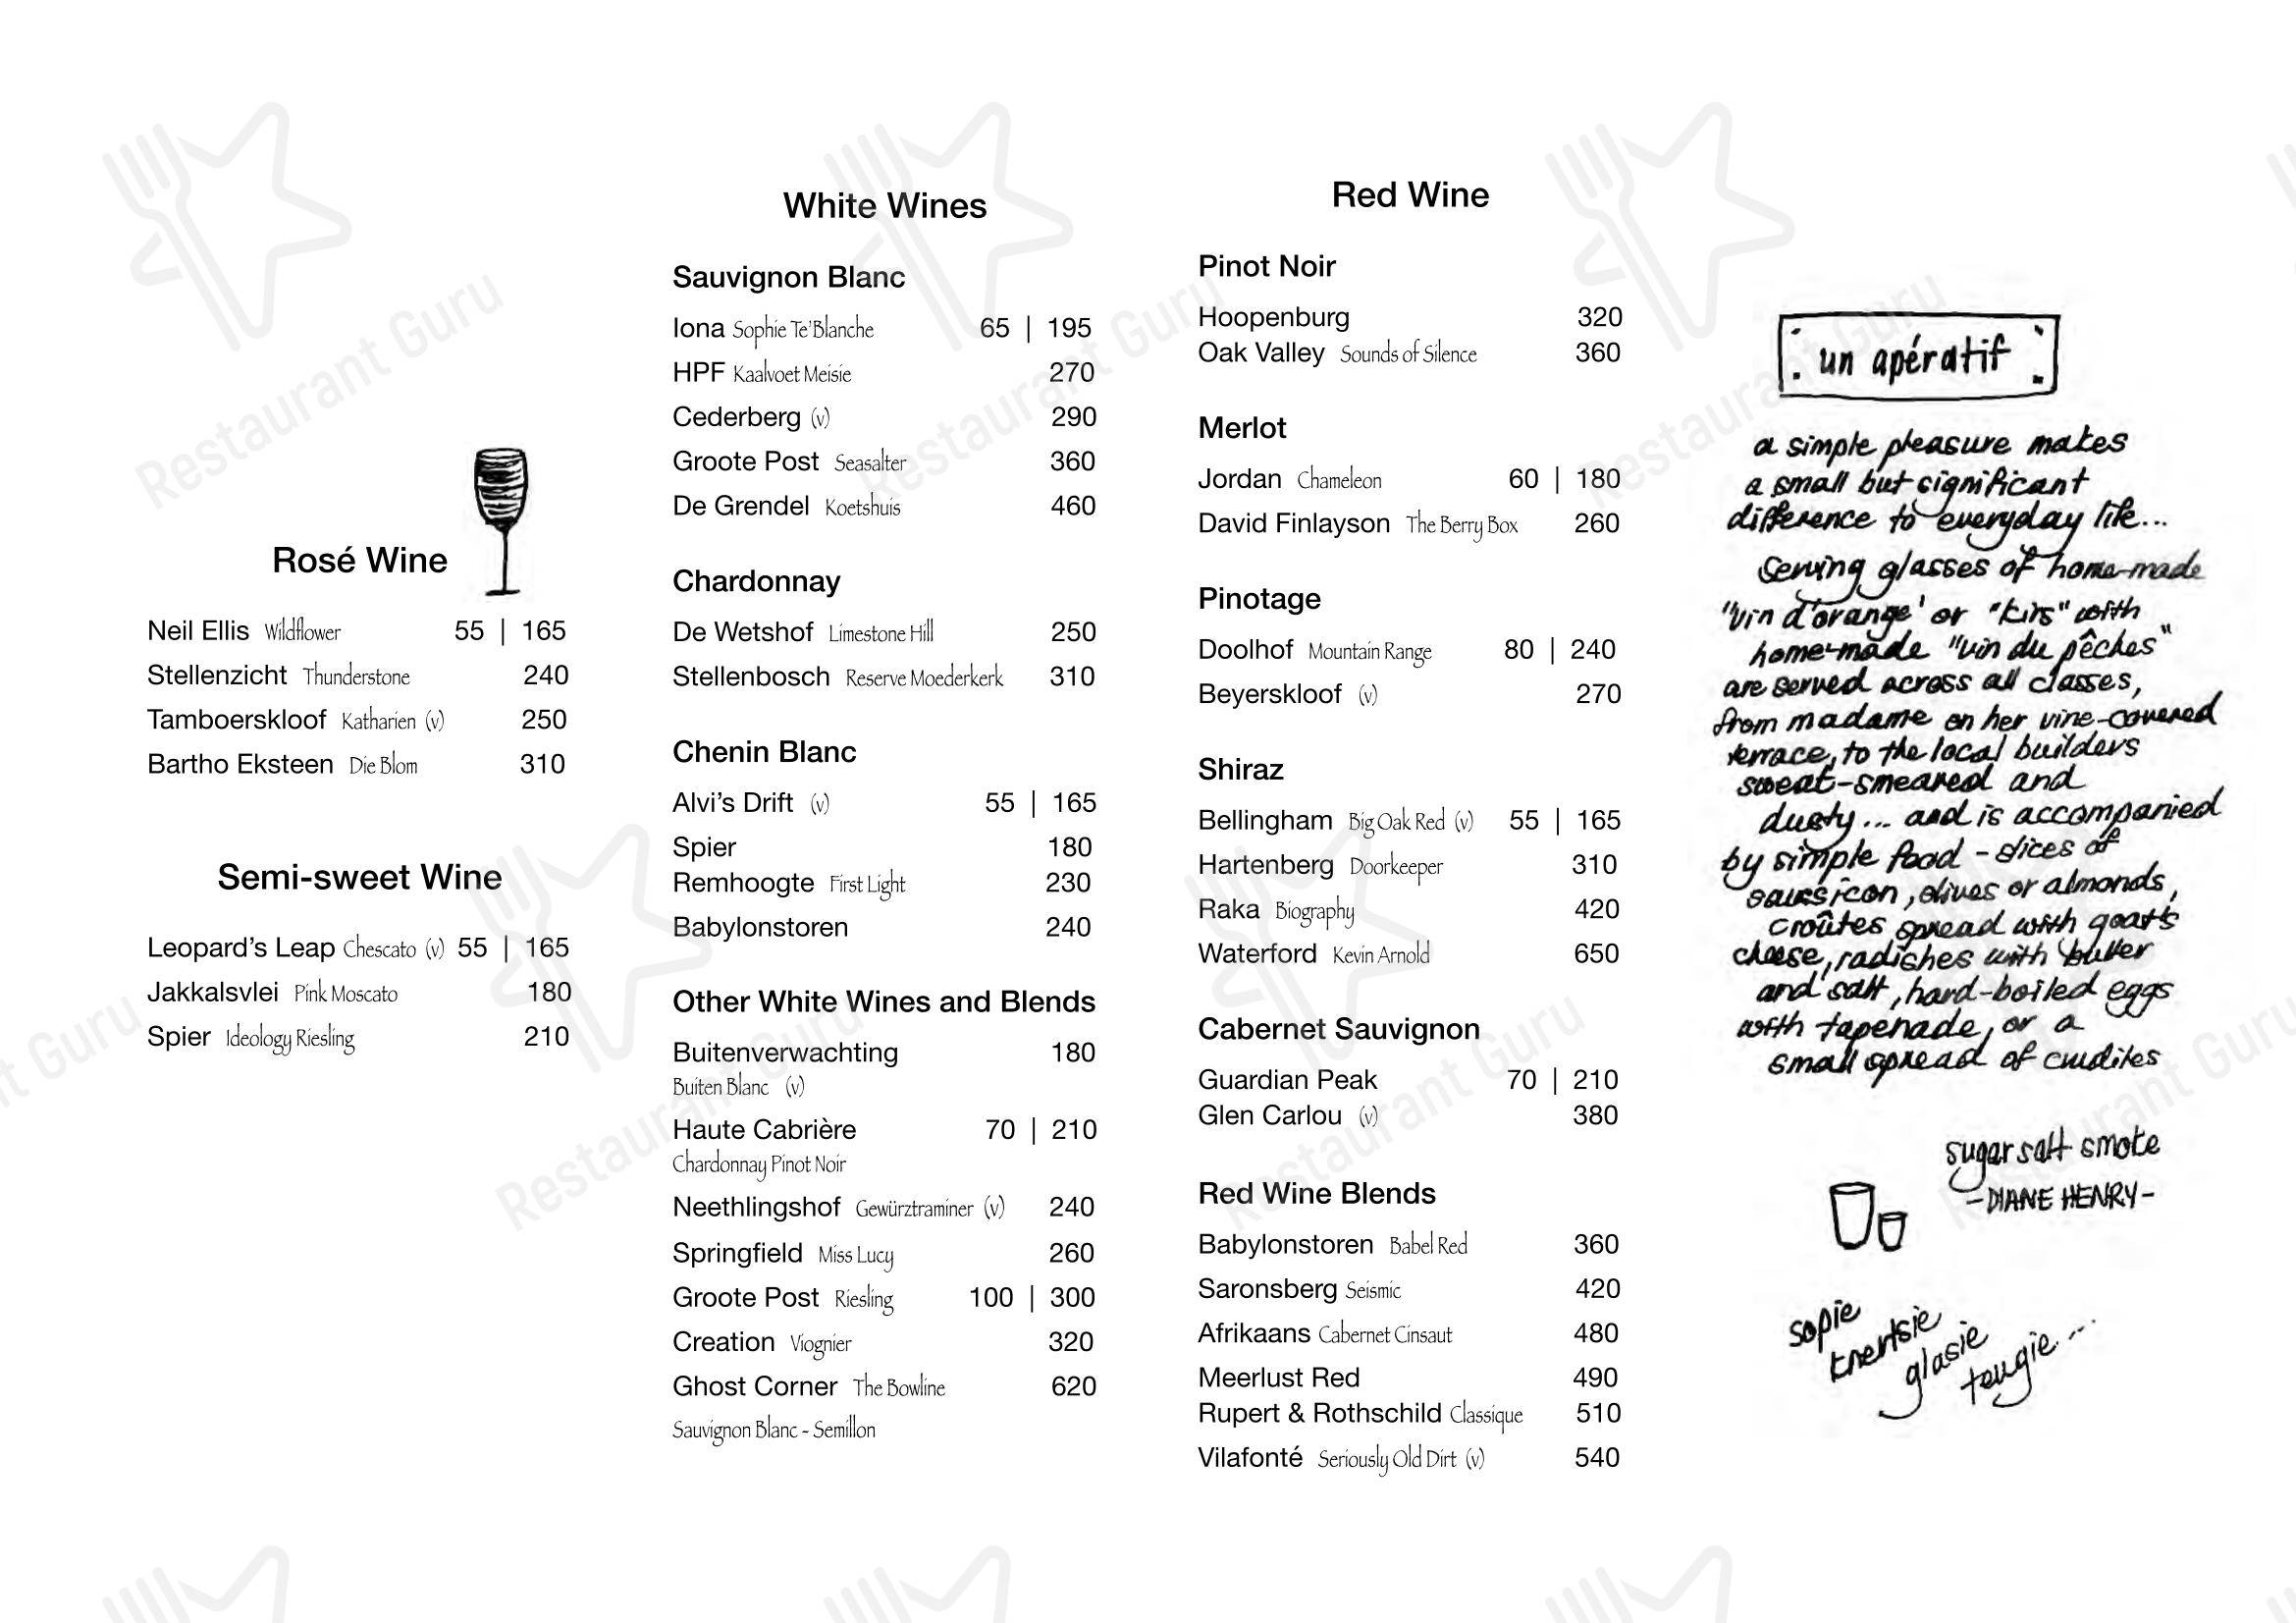 Rosé Wine
Neil Ellis Wildflower 55 | 165
Stellenzicht Thunderstone 240
Tamboerskloof Katharien (v) 250
Bartho Eksteen Die Blom 310
Semi-sweet Wine
Leopard's Leap Chescato (v) 55 | 165
Jakkalsvlei Pink Moscato 180
Spier Ideology Riesling 210
White Wines
Sauvignon Blanc
Iona Sophie Te'Blanche 65 | 195
HPF Kaalvoet Meisie 270
Cederberg (v) 290
Groote Post Seasalter 360
De Grendel Koetshuis 460
Chardonnay
De Wetshof Limestone Hill 250
Stellenbosch Reserve Moederkerk 310
Chenin Blanc
Alvi's Drift (v) 55 | 165
Spier 180
Remhoogte First Light 230
Babylonstoren 240
Other White Wines and Blends
Buitenverwachting 180
Buiten Blanc (v)
Haute Cabrière 70 | 210
Chardonnay Pinot Noir
Neethlingshof Gewürztraminer (v) 240
Springfield Miss Lucy 260
Groote Post Riesling 100 | 300
Creation Viognier 320
Ghost Corner The Bowline 620
Sauvignon Blanc - Semillon
Red Wine
Pinot Noir
Hoopenburg 320
Oak Valley Sounds of Silence 360
Merlot
Jordan Chameleon 60 | 180
David Finlayson The Berry Box 260
Pinotage
Doolhof Mountain Range 80 | 240
Beyerskloof (v) 270
Shiraz
Bellingham Big Oak Red (v) 55 | 165
Hartenberg Doorkeeper 310
Raka Biography 420
Waterford Kevin Arnold 650
Cabernet Sauvignon
Guardian Peak 70 | 210
Glen Carlou (v) 380
Red Wine Blends
Babylonstoren Babel Red 360
Saronsberg Seismic 420
Afrikaans Cabernet Cinsaut 480
Meerlust Red 490
Rupert & Rothschild Classique 510
Vilafonté Seriously Old Dirt (v) 540
un apératif
a simple pleasure makes
a small but significant
difference to everyday life...
Serving glasses of home-made
"vin d'orange' or "kirs" with
home-made "vin du pêches"
are served across all classes,
from madame on her vine-covered
terrace, to the local builders
sweat-smeared and
dusty... and is accompanied
by simple food - slices of
saussicon, olives or almonds,
croûtes spread with goat's
cheese, radishes with butter
and salt, hard-boiled eggs
with tapenade, or a
small spread of crudites
sugar salt smoke
- DIANE HENRY -
sopie
knertsie
glasie
teugie...
Restaurant Guru
Restaurant Guru
Restaurant Guru
Restaurant Guru
Restaurant Guru
Restaurant Guru
Restaurant Guru